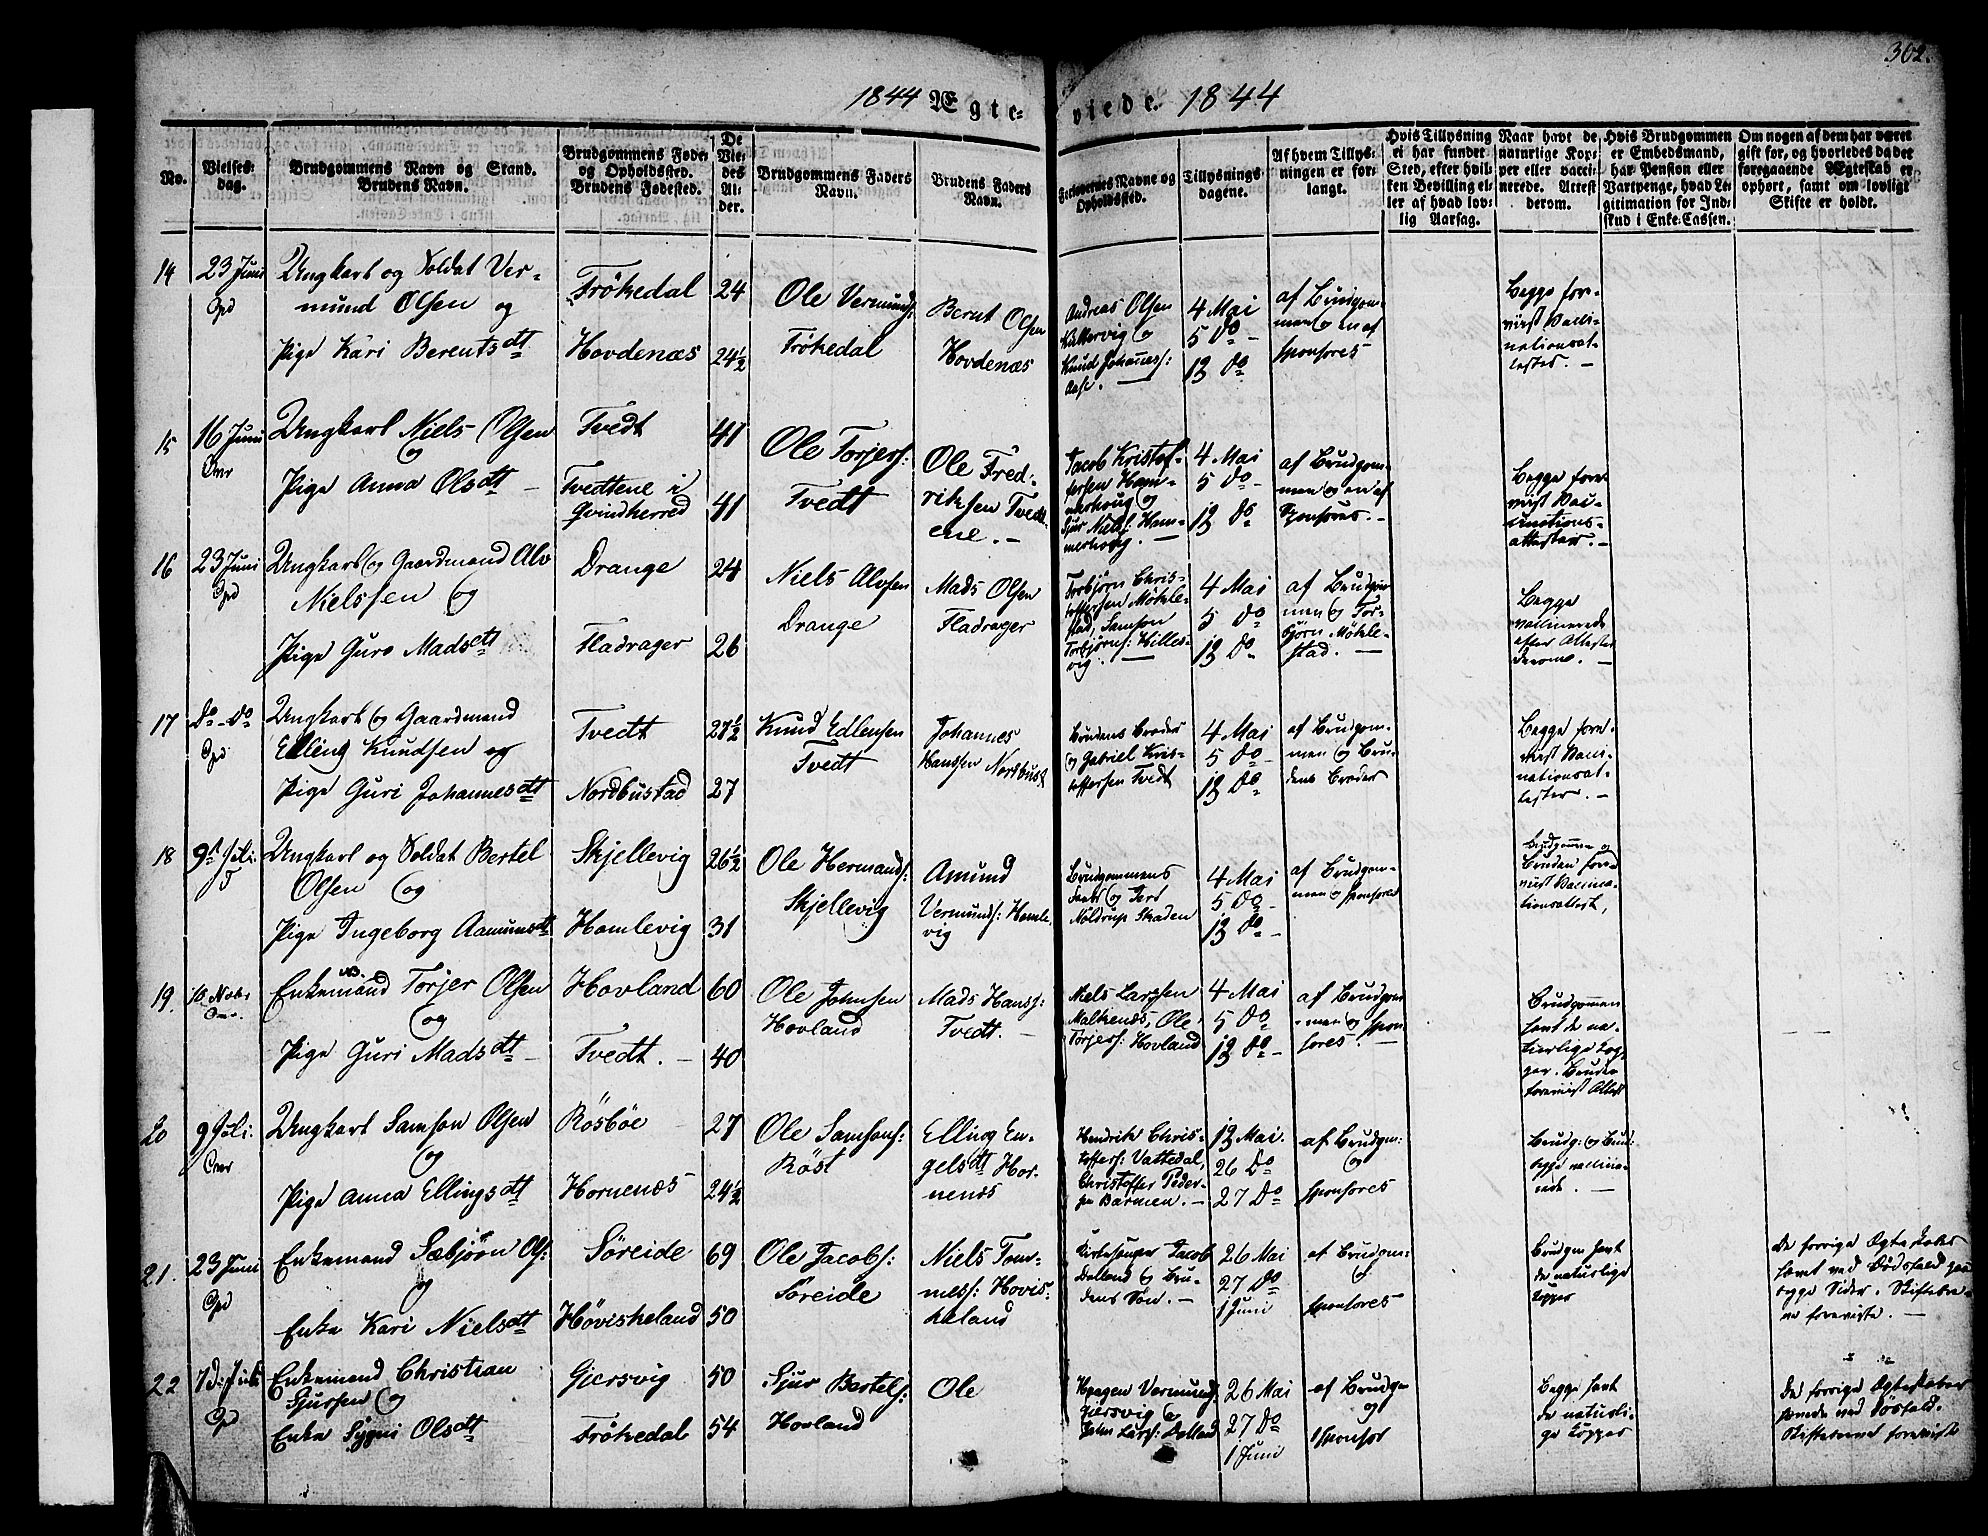 302.
1844 Ægte- viede. 1844
No.
Vielses-
dag.
Brudgommens Navn og Stand.
Brudens Navn.
Brudgommens Føde-
og Opholdssted.
Brudens Fødested.
De
Vie-
des
Al-
der.
Brudgommens Faders
Navn.
Brudens Faders
Navn.
Forlovernes Navne og
Opholdssted.
Tillysnings-
dagene.
Af hvem Tillys-
ningen er for-
langt.
Hvis Tillysning
ei har fundet
Sted, efter hvil-
ken Bevilling el-
ler af hvad lov-
lig Aarsag.
Naar havt de
naturlige Kop-
per eller vacci-
nerede. Attest
derom.
Hvis Brudgommen
er Embedsmand,
har Pension eller
Vartpenge, hvad Le-
gitimation for Ind-
skud i Enke-Cassen.
Om nogen af dem har været
gift før, og hvorledes da det
foregaaende Ægteskab er
ophørt, samt om lovligt
Skifte er holdt.
14
23 Juni
Opd
Ungkarl og Soldat Ver-
mund Olsen og
Pige Kari Berentsdt
Frökedal
Hovdenæs
24
24½
Ole Vermunds:
Frökedal
Bernt Olsen
Hovdenæs
Andreas Olsen
og
Knud Johaness:
Aase. —
4 Mai
5 Do -
12 Do
af Brudgom-
men og en af
sponsores
Begge fore-
viist Vacci-
nationsat-
tester. —
15
16 Juni
Ower
Ungkarl Niels Olsen
og
Pige Anna Olsdt —
Tvedt
Tvedtene i
Qvindherred
41
41
Ole Torjers:
Tvedt
Ole Fred-
riksen Tvedt-
ene. —
Jacob Kristof-
fersen Ham-
merhoug og
Sjur Niels: Ham-
merhoug. —
4 Mai
5 Do -
12 Do
af Brudgom-
men og en af
Sponsores. —
Begge fore-
viist Vac-
cinations-
attester. —
16
23 Juni
Opd
Ungkarl og Gaardmand Alv
Nielssen og
Pige Guro Madsdt
Drange
Fladrager
24
26
Niels Alvsen
Drange
Mads Olsen
Fladrager
Torbjörn Chris-
toffersen Mökle-
stad, Samson
Torbjörns: Hilles-
vig. —
4 Mai
5 Do
12 Do
af Brudgom-
men og Tor-
björn Mökle-
stad. —
Begge
vaccinerede
efter Attester
derom. —
17
Do - Do
Opd
Ungkarl og Gaardmand
Elling Knudsen og
Pige Guri Johannesdt
Tvedt
Nordbustad
27½
27
Knud Edlensen
Tvedt
Johannes
Hanssen Nordbust
Brudens Broder
og Gabriel Kris-
toffersen Tvedt
4 Mai
5 Do -
12 Do
af Brudgom-
men og Bru-
dens Broder
Begge fore-
viist Vacci-
nationsat-
tester. —
18
9de Juli
Ungkarl og Soldat Bertel
Olsen og
Pige Ingeborg Aamunsdt
Skjellevig
Homlevig
26½
31
Ole Hermands:
Skjellevig
Amund
Vermunds: Homle-
vig
Brudgommens
og
Nöldrup Skaden
4 Mai
5 Do
12 Do -
af Brudgom-
men og sponsores
Brudgommen og
Bruden fore-
viist Vaccina-
tionsattest,
19.
10 Nobr
Owr.
Enkemand Torjer Olsen
og
Pige Guri Madsdt —
Hovland
Tvedt. —
60
40
Ole Johnsen
Hovland
Mads Hanss:
Tvedt. —
Niels Larssen
Malkenæs, Ole
Torjers: Hovland
4 Mai
5 Do
12 Do -
af Brudgom-
men og spon-
sores. —
Brudgommen
havt de na-
turlige Kop-
per. Bruden
foreviist Attest
20
9 Juli.
Ower
Ungkarl Samson Olsen
og
Pige Anna Ellingsdt
Rösböe
Hornenæs
27
24½
Ole Samsons:
Röst
Elling En-
gelsdt Hor-
nenæs
Hendrik Chris-
toffers: Vattedal,
Christoffer Peder-
Barmen. —
12 Mai.
26 Do
27 Do
af Brudgm:
og
sponsores
Brudg: og Brud:
begge vaccine-
rede. —
21.
23 Juni
Opd
Enkemand Sæbjörn Ols:
og
Enke Kari Nielsdt
Söreide
Höviskeland
69
50
Ole Jacobs:
Söreide
Niels Tom-
mess: Hovis-
keland
Kirkesanger Jacob
Dalland og Bru-
dens Sön. —
26 Mai
27 Do
1 Juni
af Brudgm:
og
Sponsores
Brudgm havt
de naturlige
Kopper
De forrige Ægteskaber
hævet ved Dödsfald paa
begge Sider. Skiftebre-
ve foreviste. —
22
7d: Juli
Opd
Enkemand Christian
Sjurssen og
Enke Sygni Olsdt
Gjersvig
Frökedal
50
54
Sjur Bertels:
Hovland
Ole
Haagen Vermunds:
Giersvig og
John Lars: Dalland
26 Mai
27 Do
1 Juni
af Brudgm
og
Sponsor
Begge havt
de naturli-
ge Kopper
De forrige Ægteskaber
hævede ved Dösfald.
Skiftebrevet foreviist